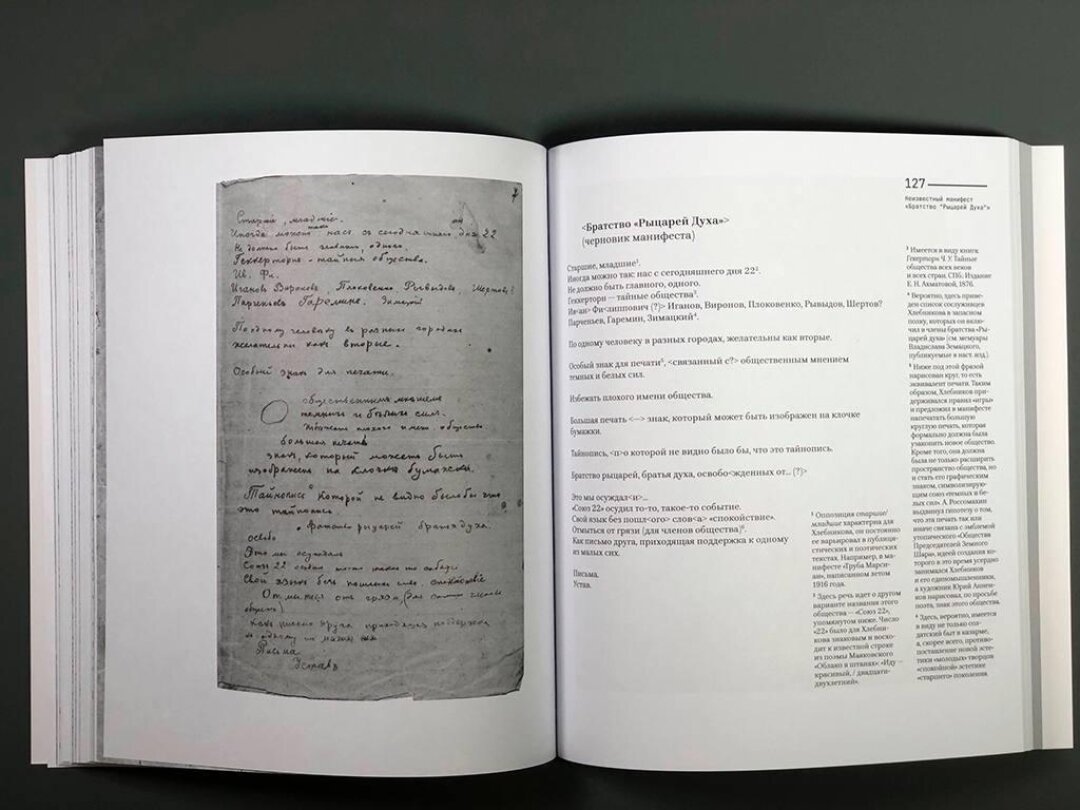 Старшие, младшие.
Иногда можно так нас с сегодняшнего дня 22
Не должно быть главного, одного.
Геккерторн - тайныя общества.
Ив. Фи.
Иганов Виронов, Плоковенко Рывыдов, Шертов?
Парченьев Гаремин. Зимацкий
По одному человеку в разных городах
желательны как вторые.
Особый знак для печати.
общественным мнением
темных и белых сил.
большая печать
знак, который может быть
изображен на клочке бумажки.
Тайнопись которой не видно было бы что
это тайнопись.
Это мы осуждал
Союз 22
Свой язык без
Отмыться от грязи
Письма
Устав
127
Неизвестный манифест
«Братство "Рыцарей Духа"»
<Братство «Рыцарей Духа»>
(черновик манифеста)
Старшие, младшие¹.
Иногда можно так: нас с сегодняшнего дня 22².
Не должно быть главного, одного.
Геккерторн — тайные общества³.
Ив<ан> Фи<липпович (?)> Иганов, Виронов, Плоковенко, Рывыдов, Шертов?
Парченьев, Гаремин, Зимацкий⁴.
По одному человеку в разных городах, желательны как вторые.
Особый знак для печати⁵, <связанный с?> общественным мнением
темных и белых сил.
Избежать плохого имени общества.
Большая печать <—> знак, который может быть изображен на клочке
бумажки.
Тайнопись, <п>о которой не видно было бы, что это тайнопись.
Братство рыцарей, братья духа, освобо<жденных от... (?)>
Это мы осуждал<и>...
«Союз 22» осудил то-то, такое-то событие.
Свой язык без пошл<ого> слов<а> «спокойствие».
Отмыться от грязи (для членов общества)⁶.
Как письмо друга, приходящая поддержка к одному
из малых сих.
Письма,
Устав.
¹ Оппозиция старшие/
младшие характерна для
Хлебникова, он постоянно
ее варьировал в публици-
стических и поэтических
текстах. Например, в ма-
нифесте «Труба Марси-
ан», написанном летом
1916 года.
² Здесь речь идет о другом
варианте названия этого
общества — «Союз 22»,
упомянутом ниже. Число
«22» было для Хлебни-
кова знаковым и восхо-
дит к известной строке
из поэмы Маяковского
«Облако в штанах»: «Иду —
красивый, / двадцати-
двухлетний».
³ Имеется в виду книга:
Геккерторн Ч. У. Тайные
общества всех веков
и всех стран. СПб.: Издание
Е. Н. Ахматовой, 1876.
⁴ Вероятно, здесь приве-
ден список сослуживцев
Хлебникова в запасном
полку, которых он вклю-
чил в члены братства «Ры-
царей духа» (см. мемуары
Владислава Земацкого,
публикуемые в наст. изд.).
⁵ Ниже под этой фразой
нарисован круг, то есть
эквивалент печати. Таким
образом, Хлебников при-
держивался правил «игры»
и предложил в манифесте
напечатать большую
круглую печать, которая
формально должна была
узаконить новое общество.
Кроме того, она должна
была не только расширить
пространство общества, но
и стать его графическим
знаком, символизирую-
щим союз «темных и бе-
лых сил». А. Россомахин
выдвинул гипотезу о том,
что эта печать так или
иначе связана с эмблемой
утопического «Общества
Председателей Земного
Шара», идеей создания ко-
торого в это время усердно
занимался Хлебников
и его единомышленники,
а художник Юрий Аннен-
ков нарисовал, по просьбе
поэта, знак этого общества.
⁶ Здесь, вероятно, имеется
в виду не только сол-
датский быт в казарме,
а, скорее всего, противо-
поставление новой эсте-
тики «молодых» творцов
«спокойной» эстетике
«старшего» поколения.